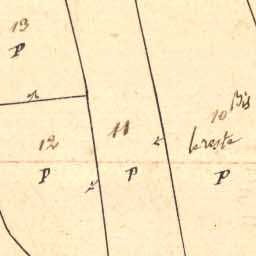 13
P
12
P
11
P
10 Bis
le reste
P